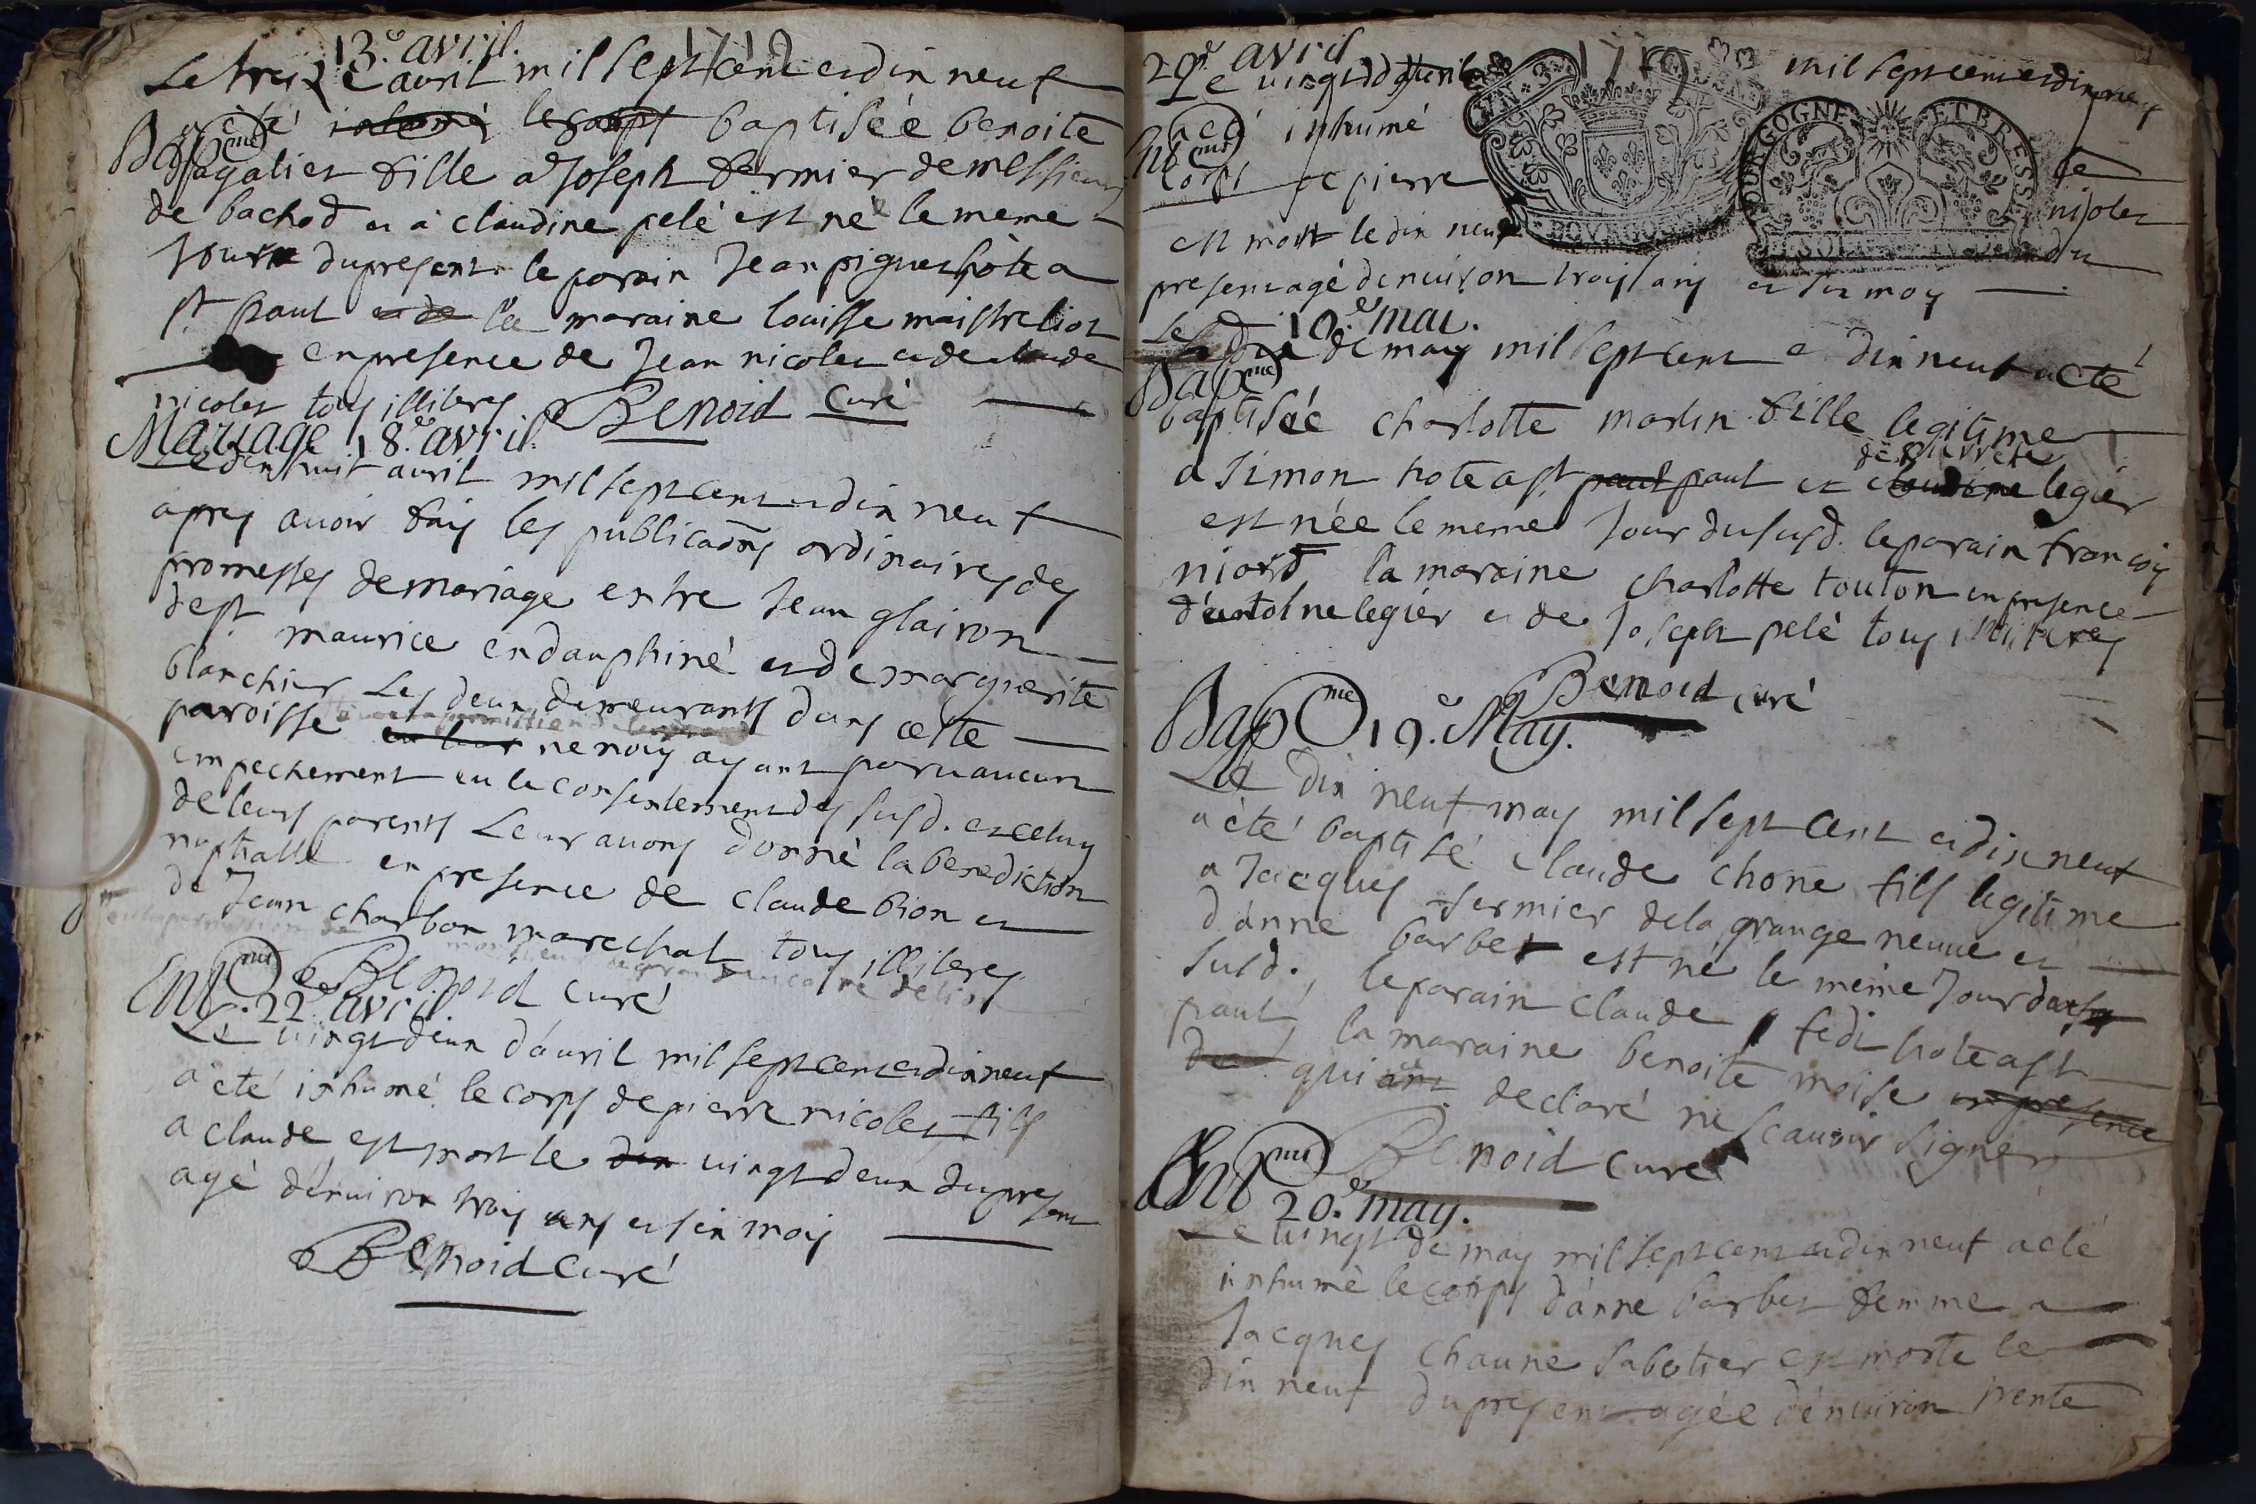 13.e avril. 1719
Le treize avril mil sept cent et dix neuf
a été inhumé le corps baptisée benoite
Bap.me
pagaliet fille a Joseph fermier de messieurs
de bachod et a claudine pelé est né le meme
Jour du present le parain Jean pignet hôte a
st paul et de la maraine louisse maistreliot
en presence de Jean nicolet et de claude
nicolet tous illiteres Benoid Curé
Mariage 18.e avril.
Le dix huit avril mil sept cent et dix neuf
apres avoir fais les publicaōns ordinaires des
promesses de mariage entre Jean glairon
de st maurice en dauphiné et de marguerite
blanchier les deux demeurants dans cette
paroisse ne nous ayant paru aucun
empechement eu le consentement des susd. et celuy
de leurs parents Leur avons donné la benediction
nuptialle en presence de claude bion et
de Jean charbon marechal tous illiteres
Benoid curé
Ent.mt 22.e avril.
Le vingt deux d'avril mil sept cent et dix neuf
a été inhumé le corps de pierre nicolet fils
a claude est mort le dix vingt deux du present
agé d'enuiron trois ans et six mois
Benoid Curé
29.e avril 1719
Le vingt mil sept cent et dix neuf
a eté inhumé le
Ent.mt
corps de pierre nicolet
est mort le dix neuf du
present agé d'enuiron troys ans et six moys
BOURGOGNE ET BRESSE
10.e mai.
Le dix de may mil sept cent et dix neuf a eté
Bap.me
baptisée charlotte martin fille legitime
de pierrette
a simon hote a st paul paul et claudine legier
est née le meme Jour du susd. le parain françois
niord la maraine charlotte touton en presence
d'antoine legier et de Joseph pelé tous illiteres
Benoid curé
Bap.me 19.e May.
Le dix neuf may mil sept cent et dix neuf
a été baptisé claude chone fils legitime
a Jacques fermier de la grange neuue et
d'anne barbet est né le même Jour du
susd. le parain claude fedi hote a st
paul la maraine benoite moise en presence
qui ont declaré ne scauoir signer
Benoid curé
Ent.mt 20.e may.
Le vingt de may mil sept cent et dix neuf a eté
inhumé le corps d'anne barbet femme a
Jacques chaune sabotier est morte le
dix neuf du present agée d'enuiron trente